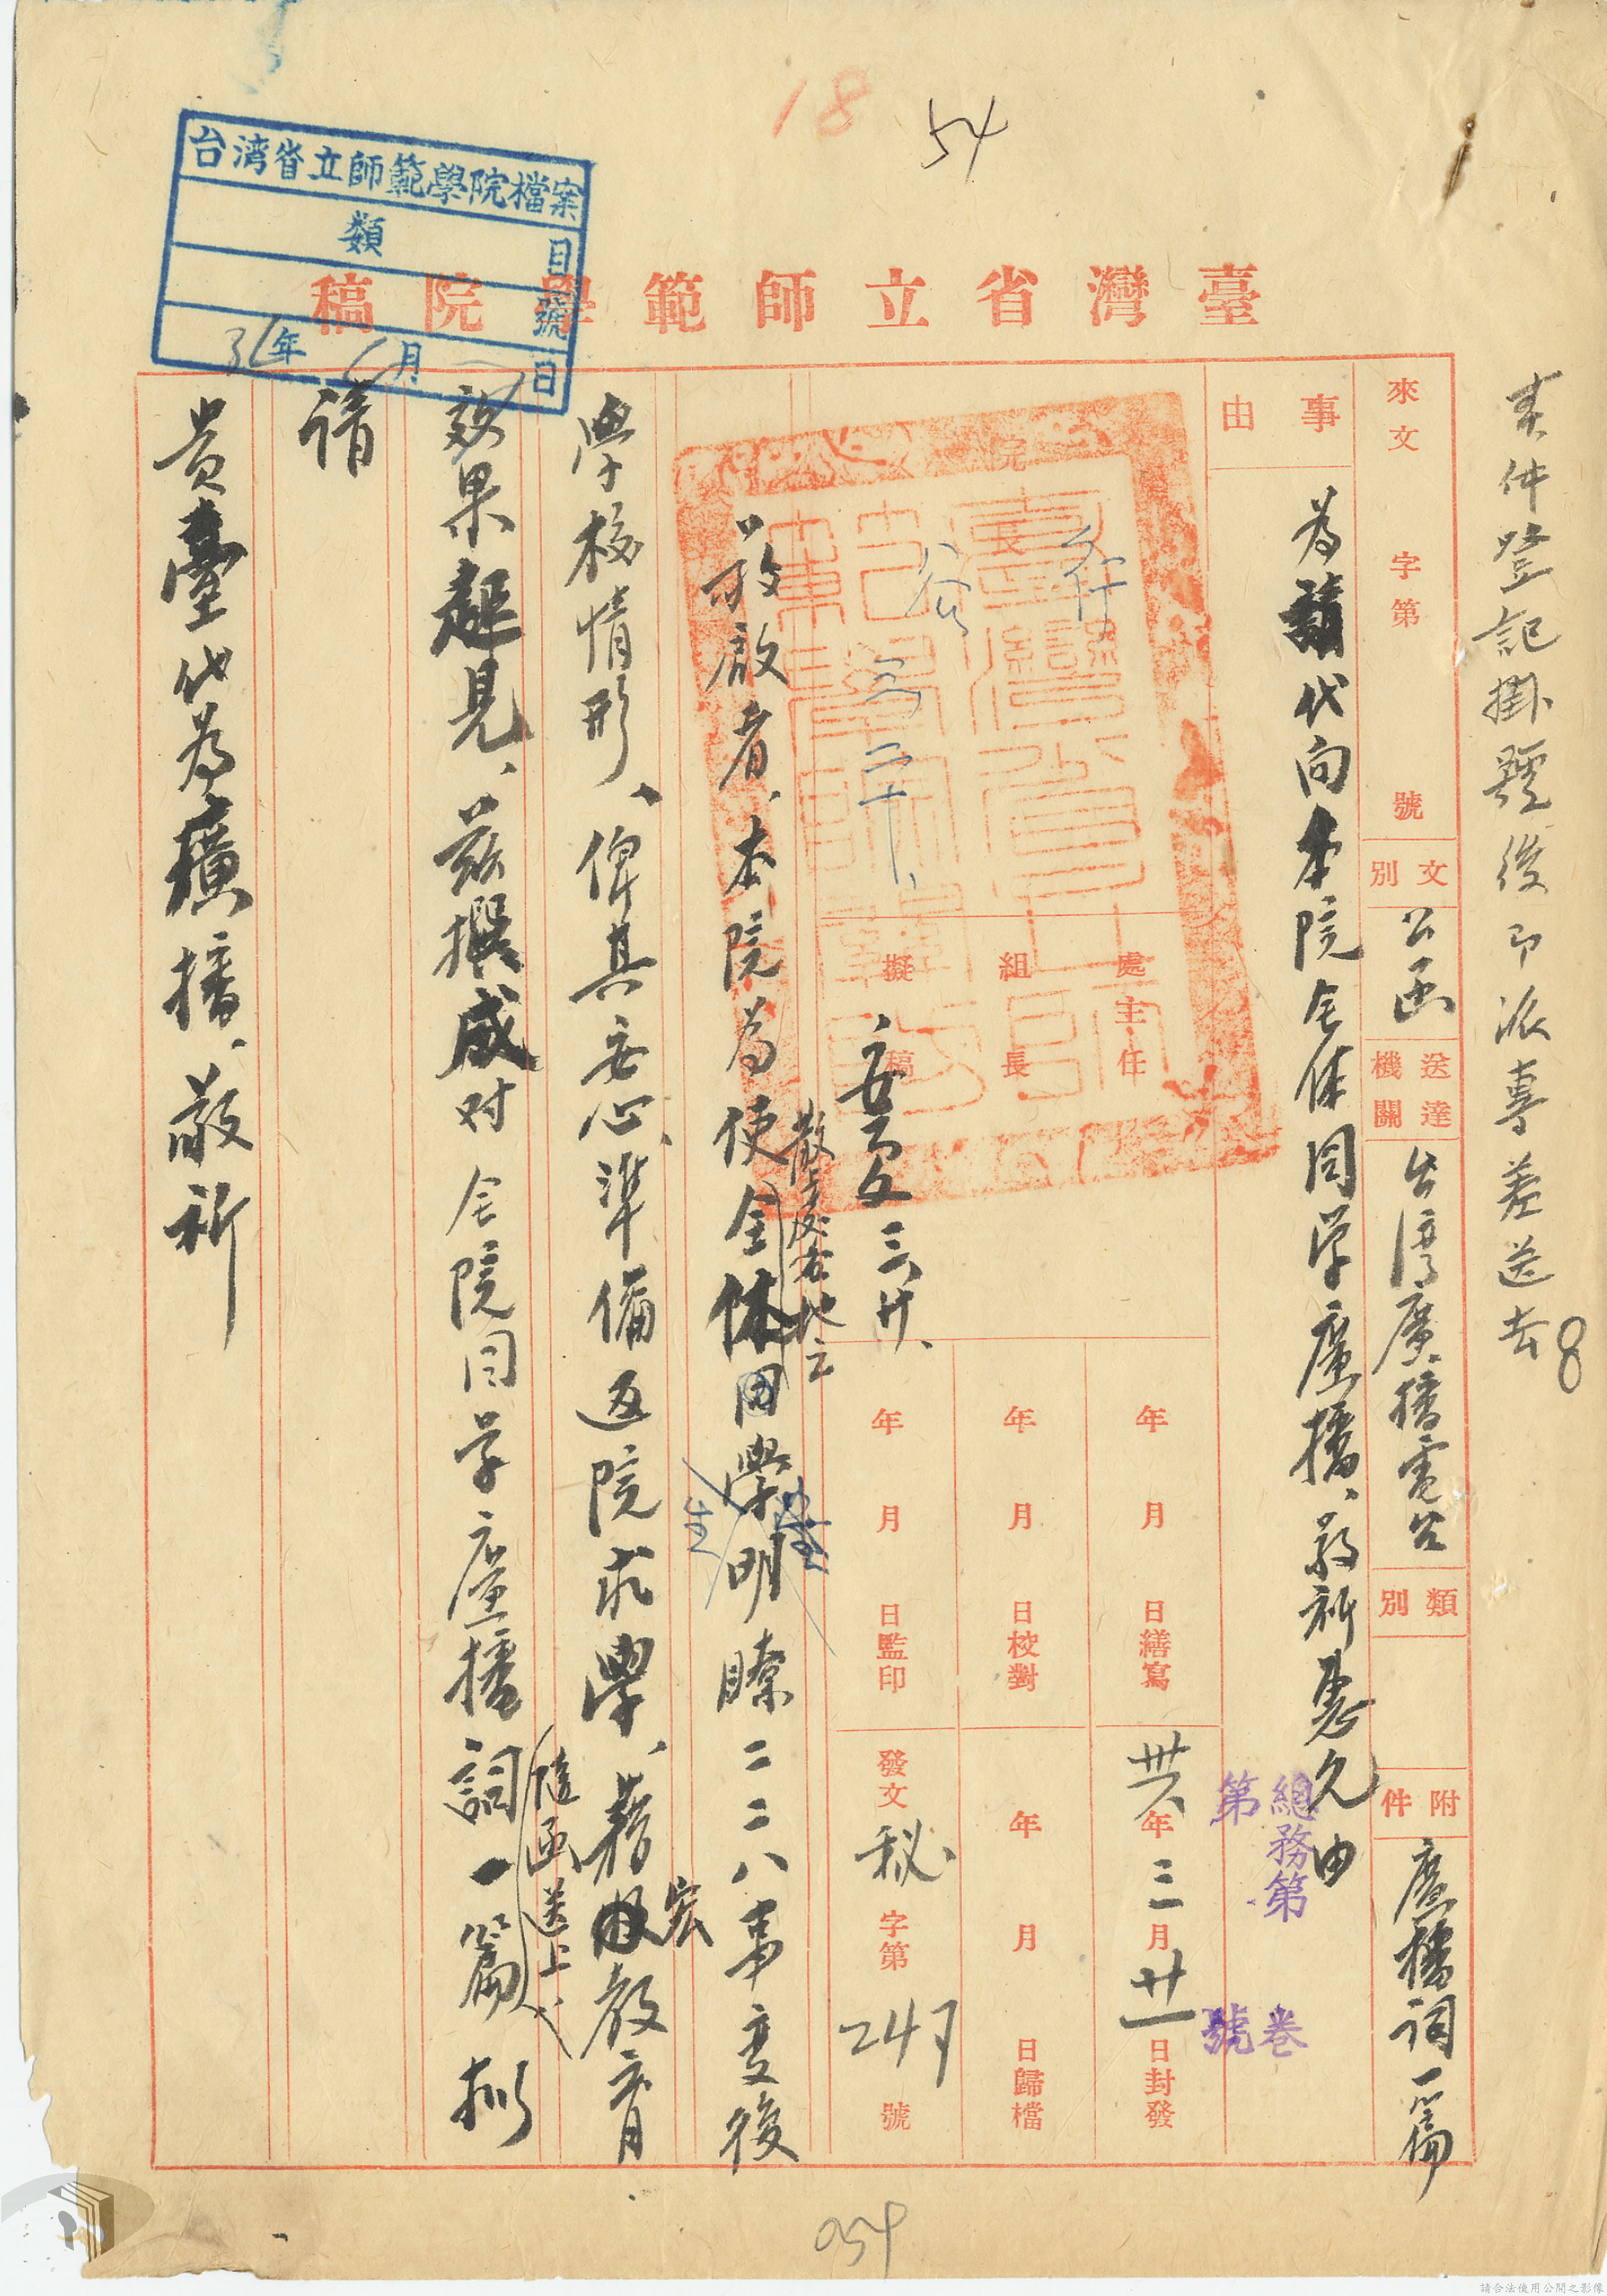 18
54
台湾省立師範學院檔案
類
目
號
36年 月 日
臺灣省立師範學院稿
本件登記掛號後即派專差送去
8
來文 字第 號
文別 公函
送達機關 台湾廣播電台
類別
附件 廣播詞一篇
事由
為請代向本院全体同学廣播、敬祈惠允由
總務第 卷
第 號
院長
處主任
組長
擬稿
三廿、
年 月 日繕寫
年 月 日校對
年 月 日監印
卅六年三月廿一日封發
年 月 日歸檔
發文 秘 字第 247 號
敬啟者、本院為使全体同學明瞭二二八事變後
散處各地之
學生
學校情形、俾其安心、準備返院求學、藉宏教育
效果起見、茲撰成对全院同学廣播詞一篇拟
隨函送上
請
貴臺代為廣播、敬祈
054
請合法使用公開之影像